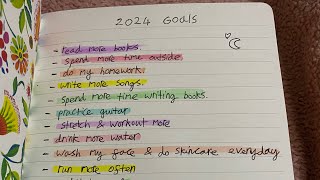 2024 Goals
- read more books.
- spend more time outside
- do my homework.
- write more songs.
- Spend more time writing books.
- practice guitar
- stretch & workout more
- drink more water
- wash my face & do skincare everyday
- run more often